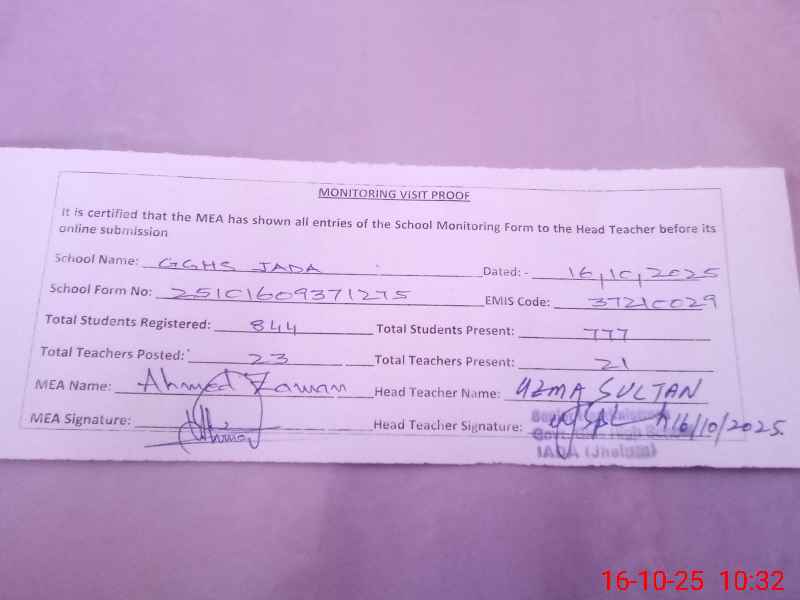 MONITORING VISIT PROOF
It is certified that the MEA has shown all entries of the School Monitoring Form to the Head Teacher before its
online submission
School Name: GGHS JADA Dated: - 16,10,2025
School Form No: 25101609371275 EMIS Code: 37210029
Total Students Registered: 844 Total Students Present: 777
Total Teachers Posted: 23 Total Teachers Present: 21
MEA Name: Ahmed Zaman Head Teacher Name: UZMA SULTAN
MEA Signature: Head Teacher Signature: 16/10/2025.
JADA (Jhelum)
16-10-25 10:32